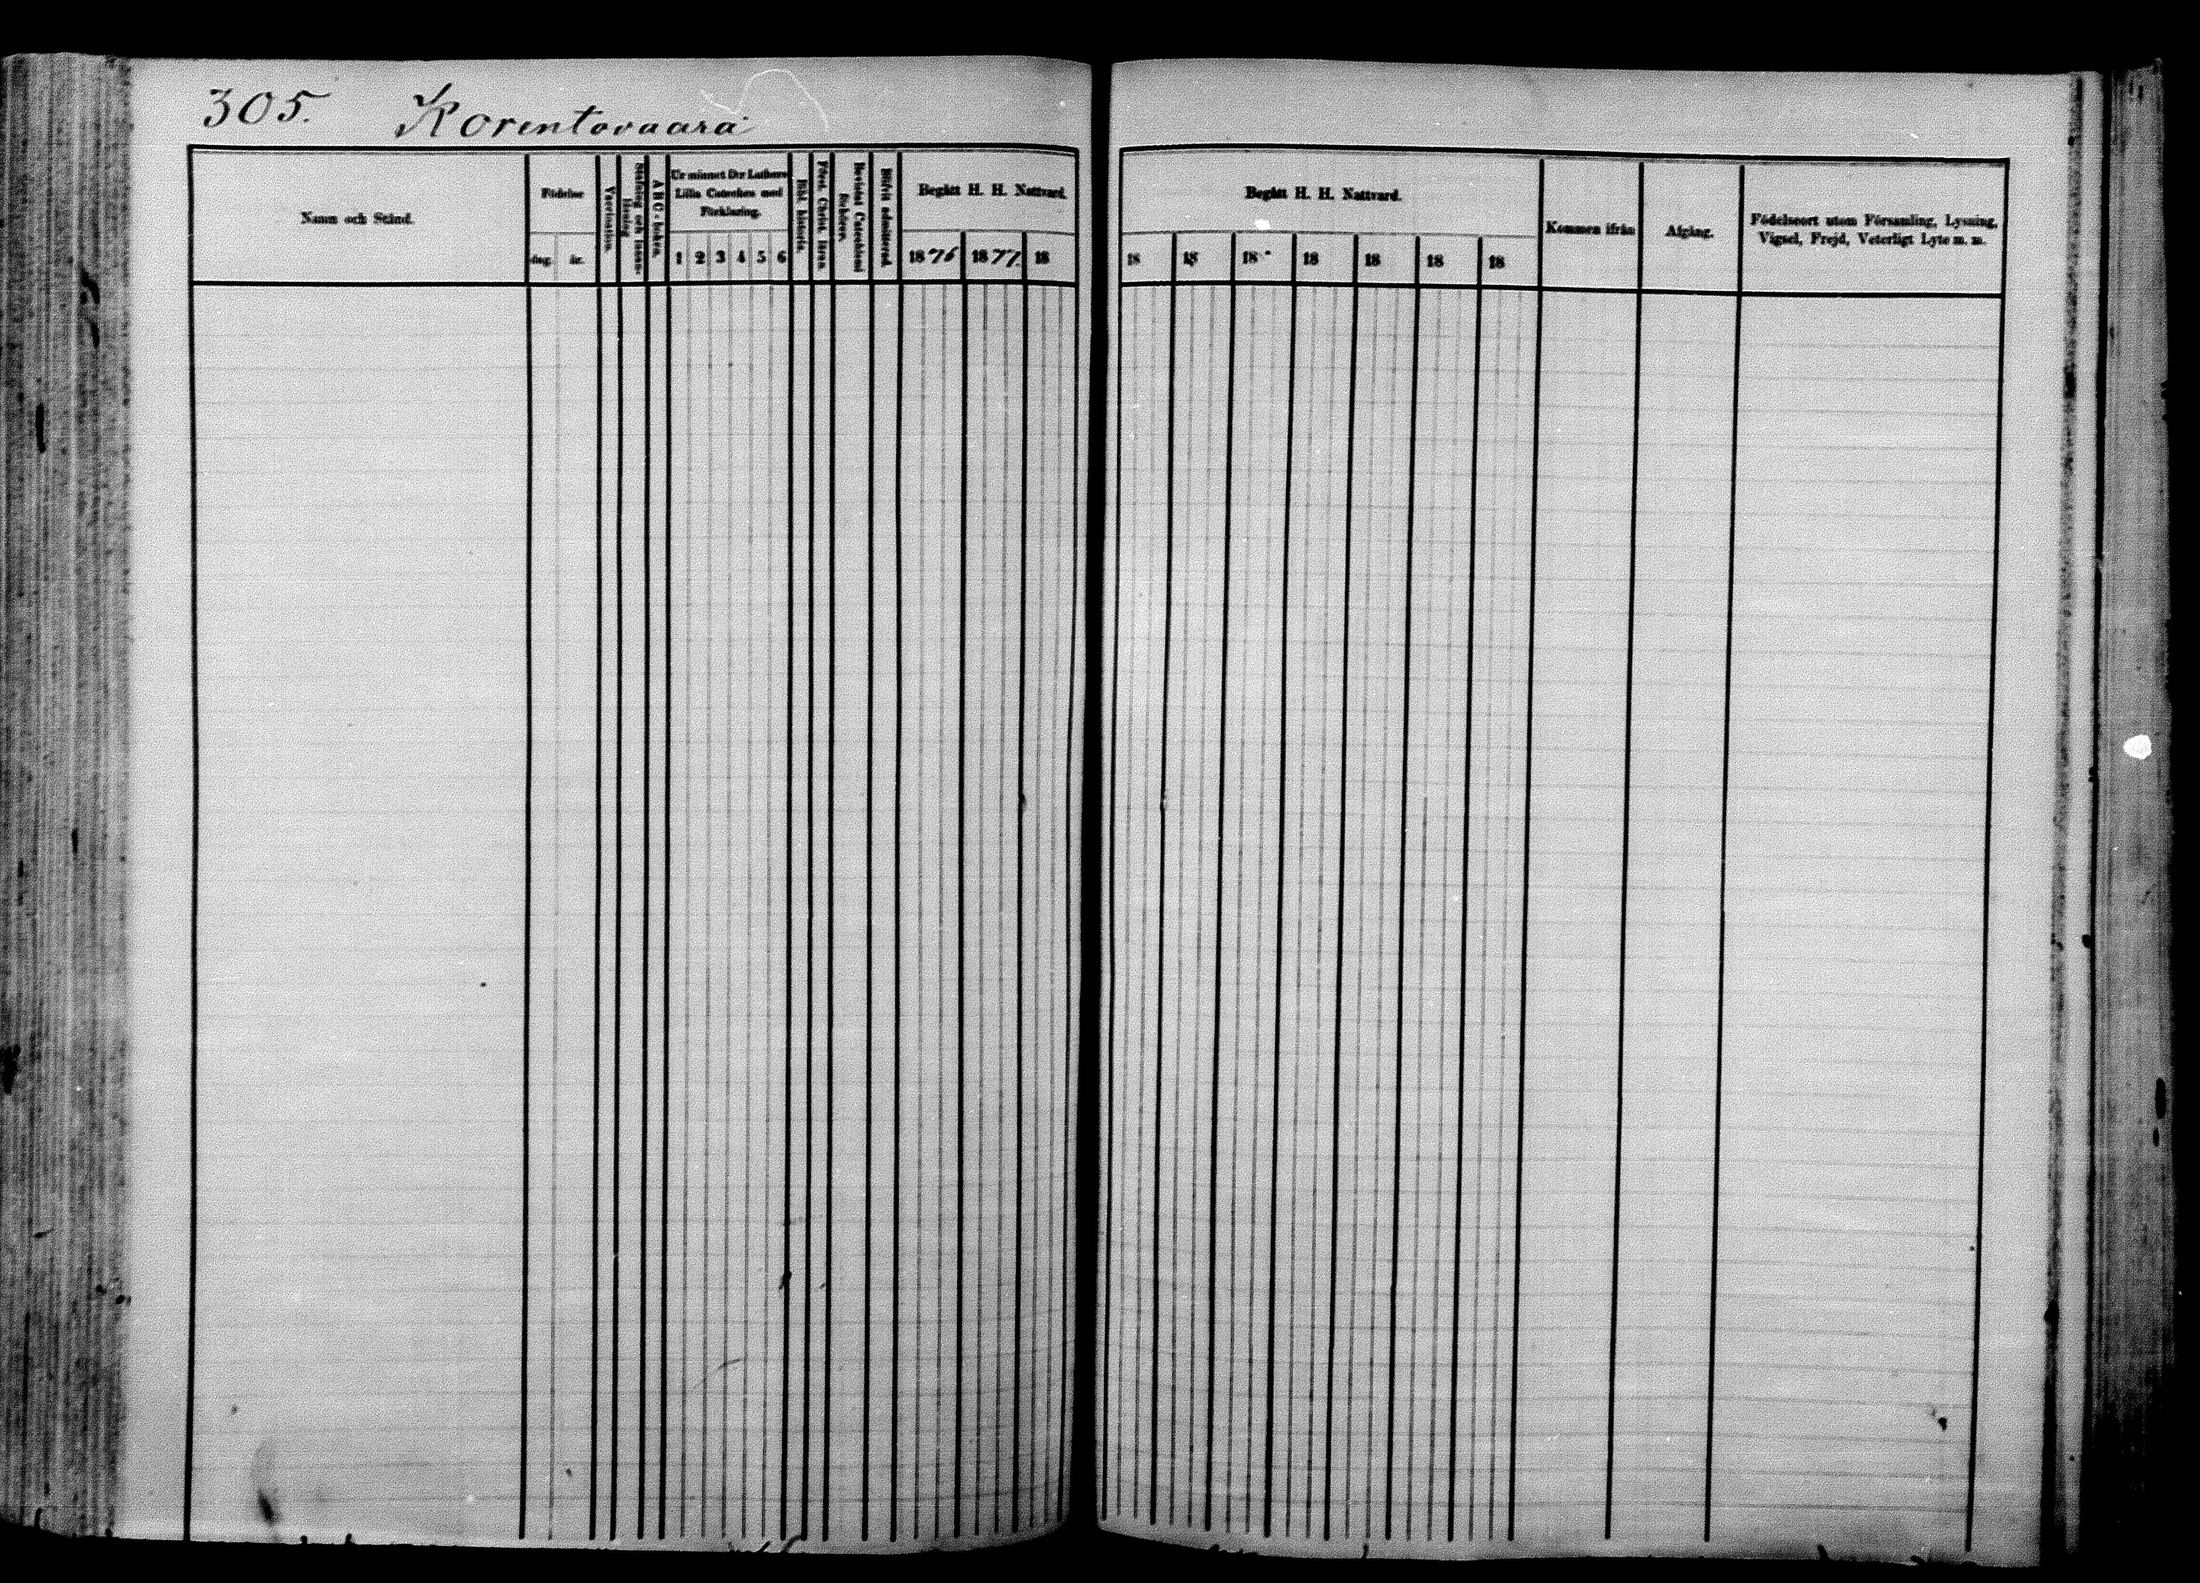 305. Korentovaara
Namn och Stånd.
Födelse
dag. år.
Vaccination.
Stafning och innan-
läsning
A B C-boken.
Ur minnet D:r Luthers
Lilla Cateches med
Förklaring.
1 2 3 4 5 6
Bibl. historia.
Först. Christ. läran.
Bevistat Catechismi
förhörer.
Blifvit admitterad.
Begått H. H. Nattvard.
1876 1877. 18
Begått H. H. Nattvard.
18 18 18 18 18 18 18
Kommen ifrån
Afgång.
Födelseort utom Församling, Lysning,
Vigsel, Frejd, Veterligt Lyte m. m.